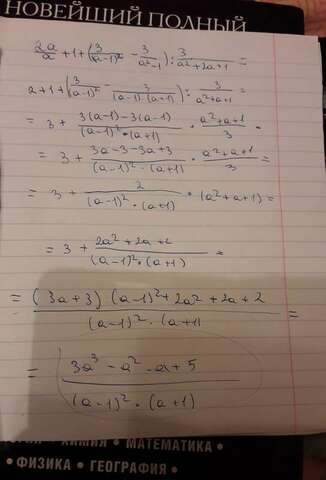 НОВЕЙШИЙ ПОЛНЫЙ
2a/a + 1 + (3/(a-1)² - 3/(a²-1)) : 3/(a²+2a+1) =
2+1+(3/(a-1)² - 3/((a-1)·(a+1))) : 3/(a²+a+1) =
= 3 + (3(a-1)-3(a-1))/((a-1)²·(a+1)) · (a²+a+1)/3 =
= 3 + (3a-3-3a+3)/((a-1)²·(a+1)) · (a²+a+1)/3 =
= 3 + 2/((a-1)²·(a+1)) · (a²+a+1) =
= 3 + (2a²+2a+2)/((a-1)²·(a+1)) =
= ((3a+3)(a-1)²+2a²+2a+2)/((a-1)²·(a+1)) =
= (3a³-a²-a+5)/((a-1)²·(a+1))
• ХИМИЯ • МАТЕМАТИКА •
• ФИЗИКА • ГЕОГРАФИЯ •